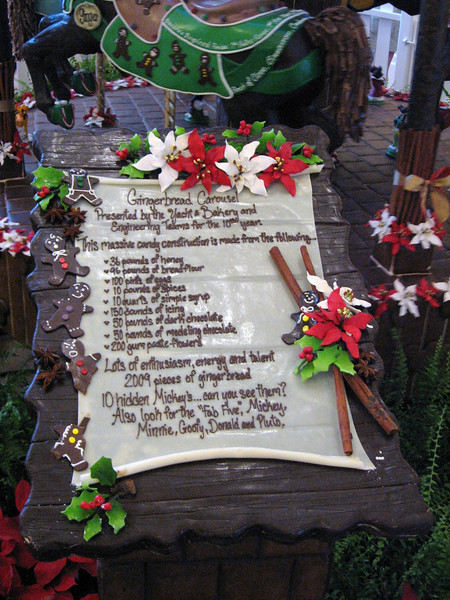 Gingerbread Carousel
Presented by the Yacht & Bakery and
Engineering Teams for the 10th year.
This massive candy construction is made from the following...
• 36 pounds of honey
• 96 pounds of bread flour
• 100 pints of eggs
• 10 pounds of spices
• 10 quarts of simple syrup
• 150 pounds of icing
• 50 pounds of dark chocolate
• 50 pounds of modeling chocolate
• 200 gum paste flowers
Lots of enthusiasm, energy and talent
2009 pieces of gingerbread
10 hidden Mickey's.... can you see them?
Also look for the "Fab Five", Mickey,
Minnie, Goofy, Donald and Pluto.